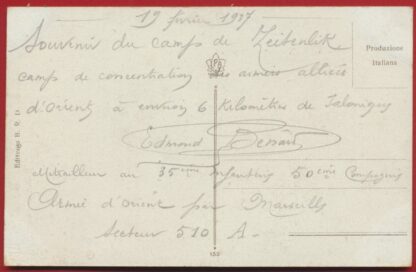 19 février 1937
Souvenir du camp de Zeitenlik
camps de concentration des armées alliées
d'Orient à environ 6 Kilomètres de Salonique
Edmond
Mitrailleur au 35ème infanterie 50ème Compagnie
Armée d'Orient par Marseille
Secteur 510 A-
Produzione
Italiana
Edizione B. R. D.
152